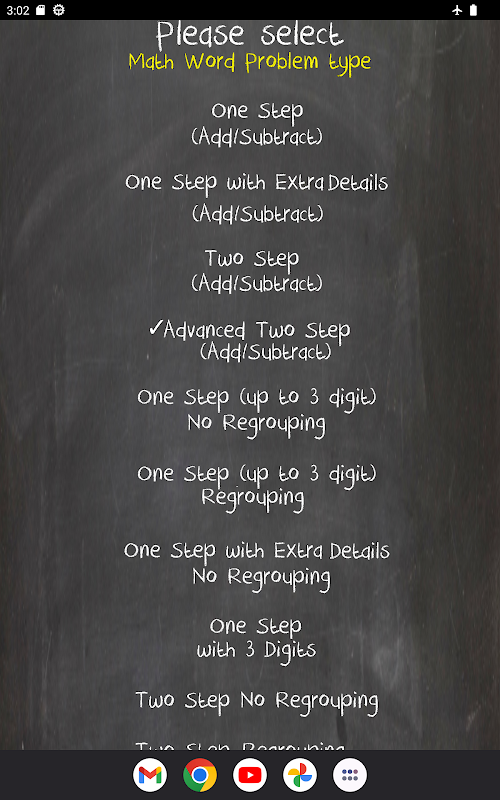 3:02
Please select
Math Word Problem type
One Step
(Add/Subtract)
One Step with Extra Details
(Add/Subtract)
Two Step
(Add/Subtract)
✓Advanced Two Step
(Add/Subtract)
One Step (up to 3 digit)
No Regrouping
One Step (up to 3 digit)
Regrouping
One Step with Extra Details
No Regrouping
One Step
with 3 Digits
Two Step No Regrouping
Two Step Regrouping